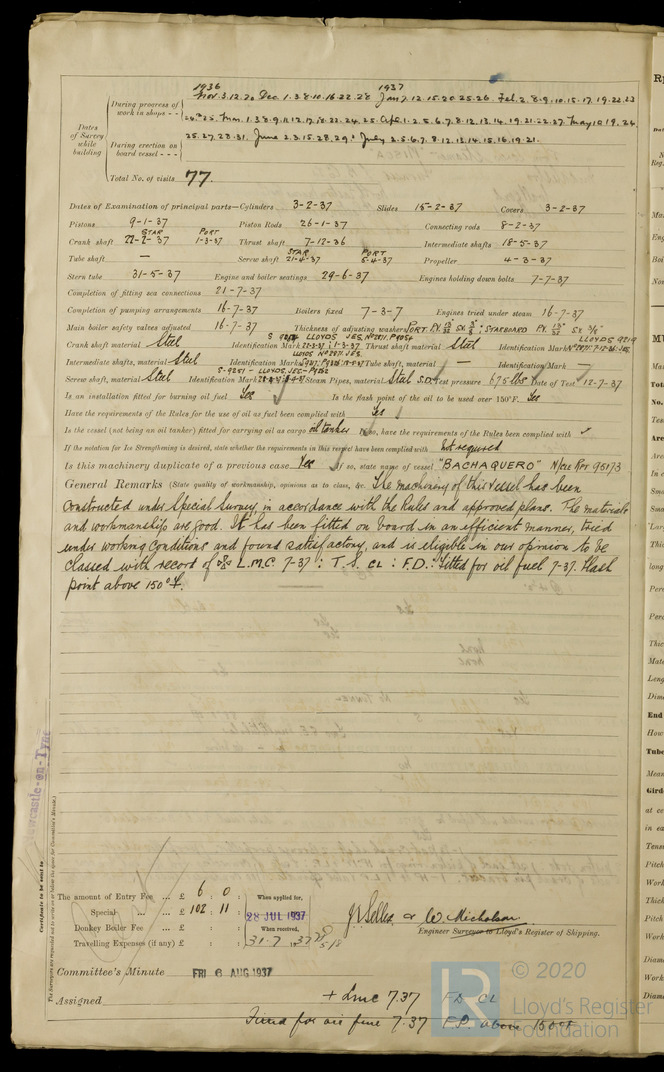 1936 1937
During progress of work in shops - - Nov. 3.12.20 Dec. 1.3.8.10.16.22.28 Jan 7.12.15.20.25.26 Feb. 2.8.9.10.15.17.19.22.23
Dates of Survey while building
During erection on board vessel - - - 25.27.28.31. June 2.3.15.28.29. July 2.5.6.7.8.12.13.14.15.16.19.21.
Total No. of visits 77.
Dates of Examination of principal parts—Cylinders 3-2-37 Slides 15-2-37 Covers 3-2-37
Pistons 9-1-37 Piston Rods 26-1-37 Connecting rods 8-2-37
Crank shaft STAR 22-2-37 PORT 1-3-37 Thrust shaft 7-12-36 Intermediate shafts 18-5-37
Tube shaft — Screw shaft STAR 21-4-37 PORT 5-4-37 Propeller 4-3-37
Stern tube 31-5-37 Engine and boiler seatings 29-6-37 Engines holding down bolts 7-7-37
Completion of fitting sea connections 21-7-37
Completion of pumping arrangements 16-7-37 Boilers fixed 7-3-7 Engines tried under steam 16-7-37
Main boiler safety valves adjusted 16-7-37 Thickness of adjusting washers PORT. STARBOARD
Crank shaft material Steel Identification Mark LLOYDS JES. Thrust shaft material Steel Identification Mark LLOYDS 9219
Intermediate shafts, material Steel Identification Marks LLOYDS Tube shaft, material — Identification Mark —
Screw shaft, material Steel Identification Mark S-9251 - LLOYDS. JES- Steam Pipes, material Steel S.D. Test pressure 675 lbs Date of Test 12-7-37
Is an installation fitted for burning oil fuel Yes Is the flash point of the oil to be used over 150°F. Yes
Have the requirements of the Rules for the use of oil as fuel been complied with Yes
Is the vessel (not being an oil tanker) fitted for carrying oil as cargo oil tanker If so, have the requirements of the Rules been complied with
If the notation for Ice Strengthening is desired, state whether the requirements in this respect have been complied with Not required
Is this machinery duplicate of a previous case Yes If so, state name of vessel "BACHAQUERO" N/cle Rpt 95173
General Remarks (State quality of workmanship, opinions as to class, &c. The machinery of this vessel has been
constructed under Special Survey in accordance with the Rules and approved plans. The materials
and workmanship are good. It has been fitted on board in an efficient manner, tried
under working conditions and found satisfactory, and is eligible in our opinion to be
classed with record of L.M.C 7-37 : T.S. CL : F.D.: Fitted for oil fuel 7-37. Flash
point above 150°F.
Newcastle-on-Tyne
Certificate to be sent to
The Surveyors are requested not to write on or below the space for Committee's Minute.
The amount of Entry Fee ... £ 6 : 0 When applied for,
Special ... ... £ 102 : 11 28 JUL 1937
Donkey Boiler Fee ... £ : : When received,
Travelling Expenses (if any) £ : : 31.7.1937
& W Nicholson
Engineer Surveyor to Lloyd's Register of Shipping.
Committee's Minute FRI 6 AUG 1937
Assigned + Lmc 7.37 FD CL
Fitted for oil fuel 7.37 F.P. above 150°F
LR © 2020
Lloyd's Register
Foundation